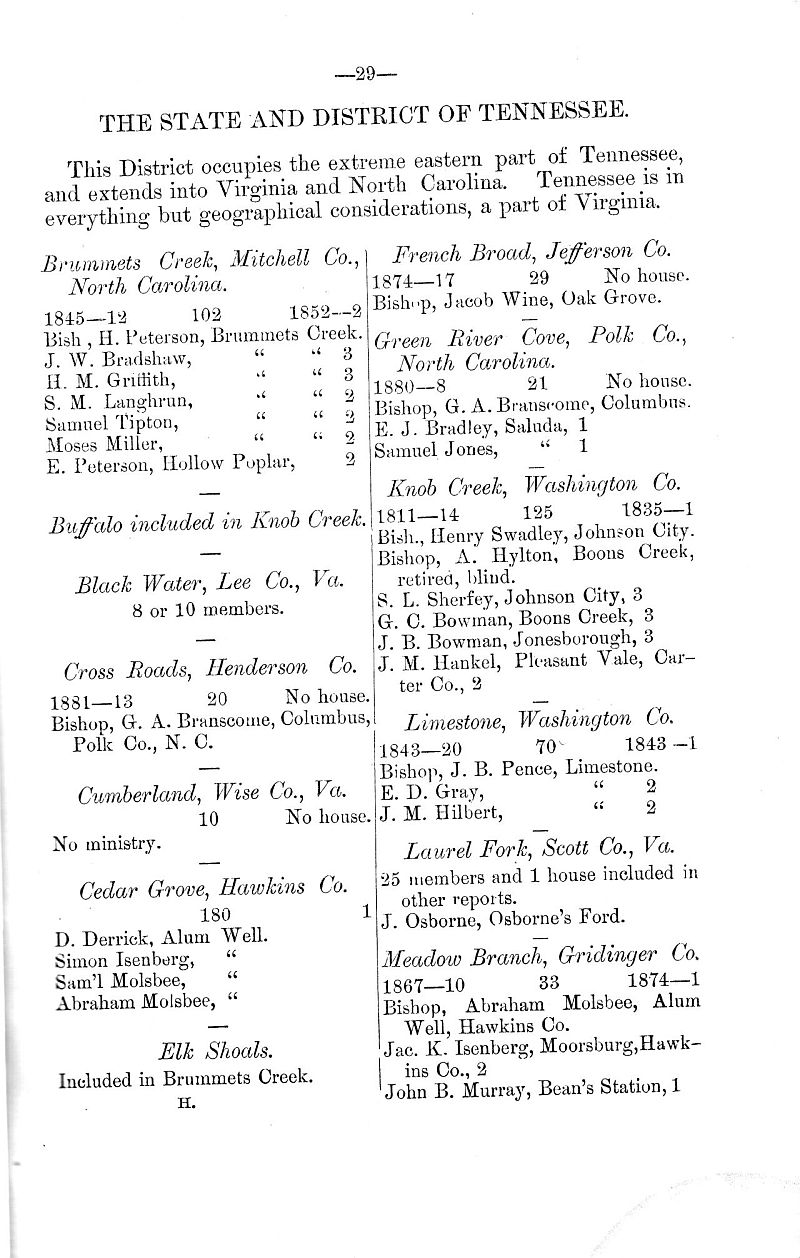 —29—
THE STATE AND DISTRICT OF TENNESSEE.
This District occupies the extreme eastern part of Tennessee,
and extends into Virginia and North Carolina. Tennessee is in
everything but geographical considerations, a part of Virginia.
Brummets Creek, Mitchell Co.,
North Carolina.
1845—12 102 1852--2
Bish , H. Peterson, Brummets Creek.
J. W. Bradshaw, “ “ 3
H. M. Griffith, “ “ 3
S. M. Langhrun, “ “ 2
Samuel Tipton, “ “ 2
Moses Miller, “ “ 2
E. Peterson, Hollow Poplar, 2
—
Buffalo included in Knob Creek.
—
Black Water, Lee Co., Va.
8 or 10 members.
—
Cross Roads, Henderson Co.
1881—13 20 No house.
Bishop, G. A. Branscome, Columbus,
Polk Co., N. C.
—
Cumberland, Wise Co., Va.
10 No house.
No ministry.
—
Cedar Grove, Hawkins Co.
180 1
D. Derrick, Alum Well.
Simon Isenberg, “
Sam'l Molsbee, “
Abraham Molsbee, “
—
Elk Shoals.
Included in Brummets Creek.
H.
French Broad, Jefferson Co.
1874—17 29 No house.
Bishop, Jacob Wine, Oak Grove.
—
Green River Cove, Polk Co.,
North Carolina.
1880—8 21 No house.
Bishop, G. A. Branscome, Columbus.
E. J. Bradley, Saluda, 1
Samuel Jones, “ 1
—
Knob Creek, Washington Co.
1811—14 125 1835—1
Bish., Henry Swadley, Johnson City.
Bishop, A. Hylton, Boons Creek,
retired, blind.
S. L. Sherfey, Johnson City, 3
G. C. Bowman, Boons Creek, 3
J. B. Bowman, Jonesborough, 3
J. M. Hankel, Pleasant Vale, Car-
ter Co., 2
—
Limestone, Washington Co.
1843—20 70 1843—1
Bishop, J. B. Pence, Limestone.
E. D. Gray, “ 2
J. M. Hilbert, “ 2
—
Laurel Fork, Scott Co., Va.
25 members and 1 house included in
other reports.
J. Osborne, Osborne's Ford.
—
Meadow Branch, Gridinger Co.
1867—10 33 1874—1
Bishop, Abraham Molsbee, Alum
Well, Hawkins Co.
Jac. K. Isenberg, Moorsburg, Hawk-
ins Co., 2
John B. Murray, Bean's Station, 1